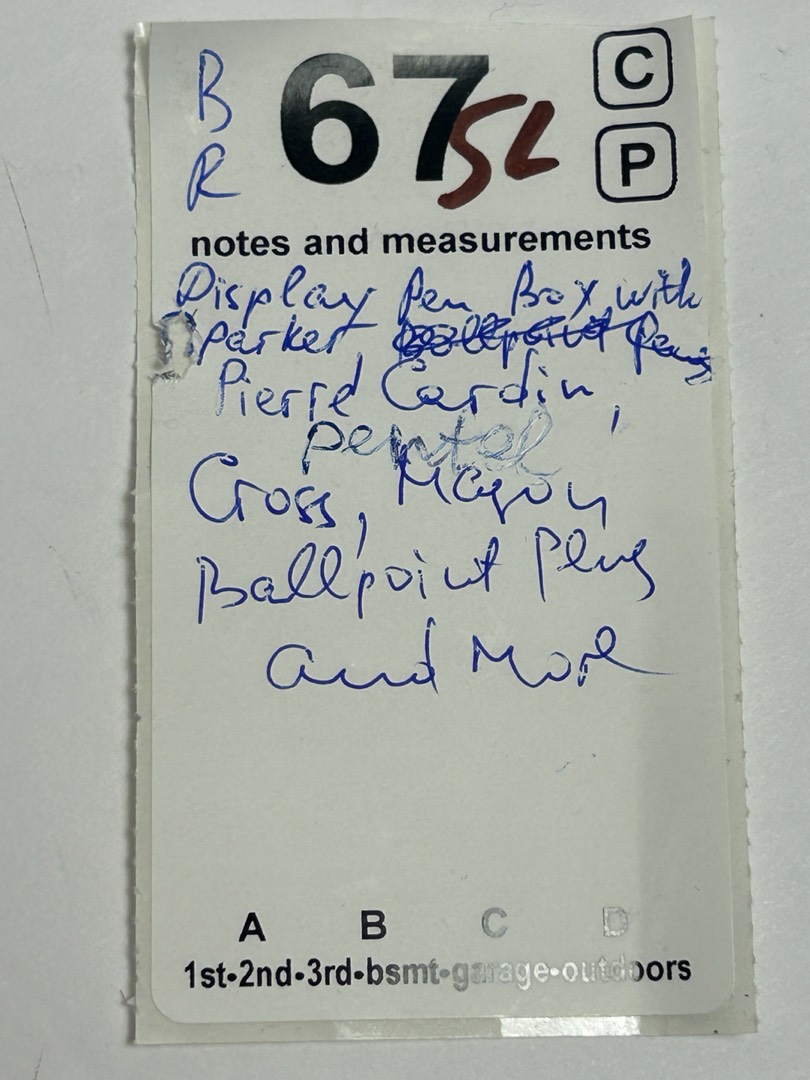 B
R
67
SL
C
P
notes and measurements
Display Pen Box with
Parker, ballpoint Pens
Pierre Cardin,
pentel
Cross, Magon
Ballpoint Pens
and More
A B C D
1st•2nd•3rd•bsmt•garage•outdoors